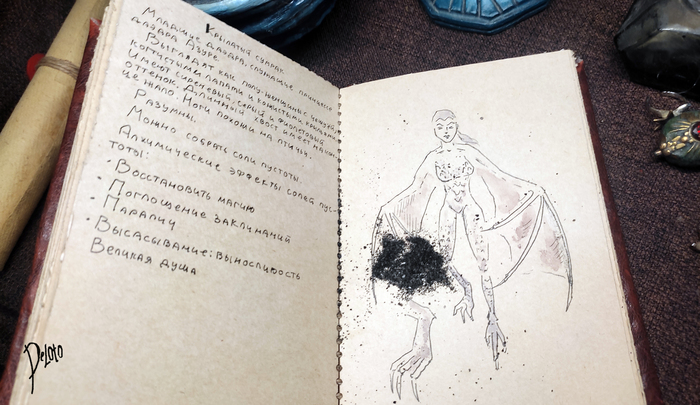 Крылатый сумрак
Младшие даэдра, служащие принцессе
даэдра Азуре.
Выглядят как полу-женщины с чешуёй,
когтистыми лапами и кожистыми крыльями.
Имеют сиреневый, серый и фиолетовый
оттенок. Длинный хвост имеет на кон-
це жало. Ноги похожи на птичьи.
Разумны.
Можно собрать соли пустоты.
Алхимические эффекты солей пус-
тоты:
· Восстановить магию
· Поглощение заклинаний
· Паралич
· Высасывание: выносливость
Великая душа
DeLoto